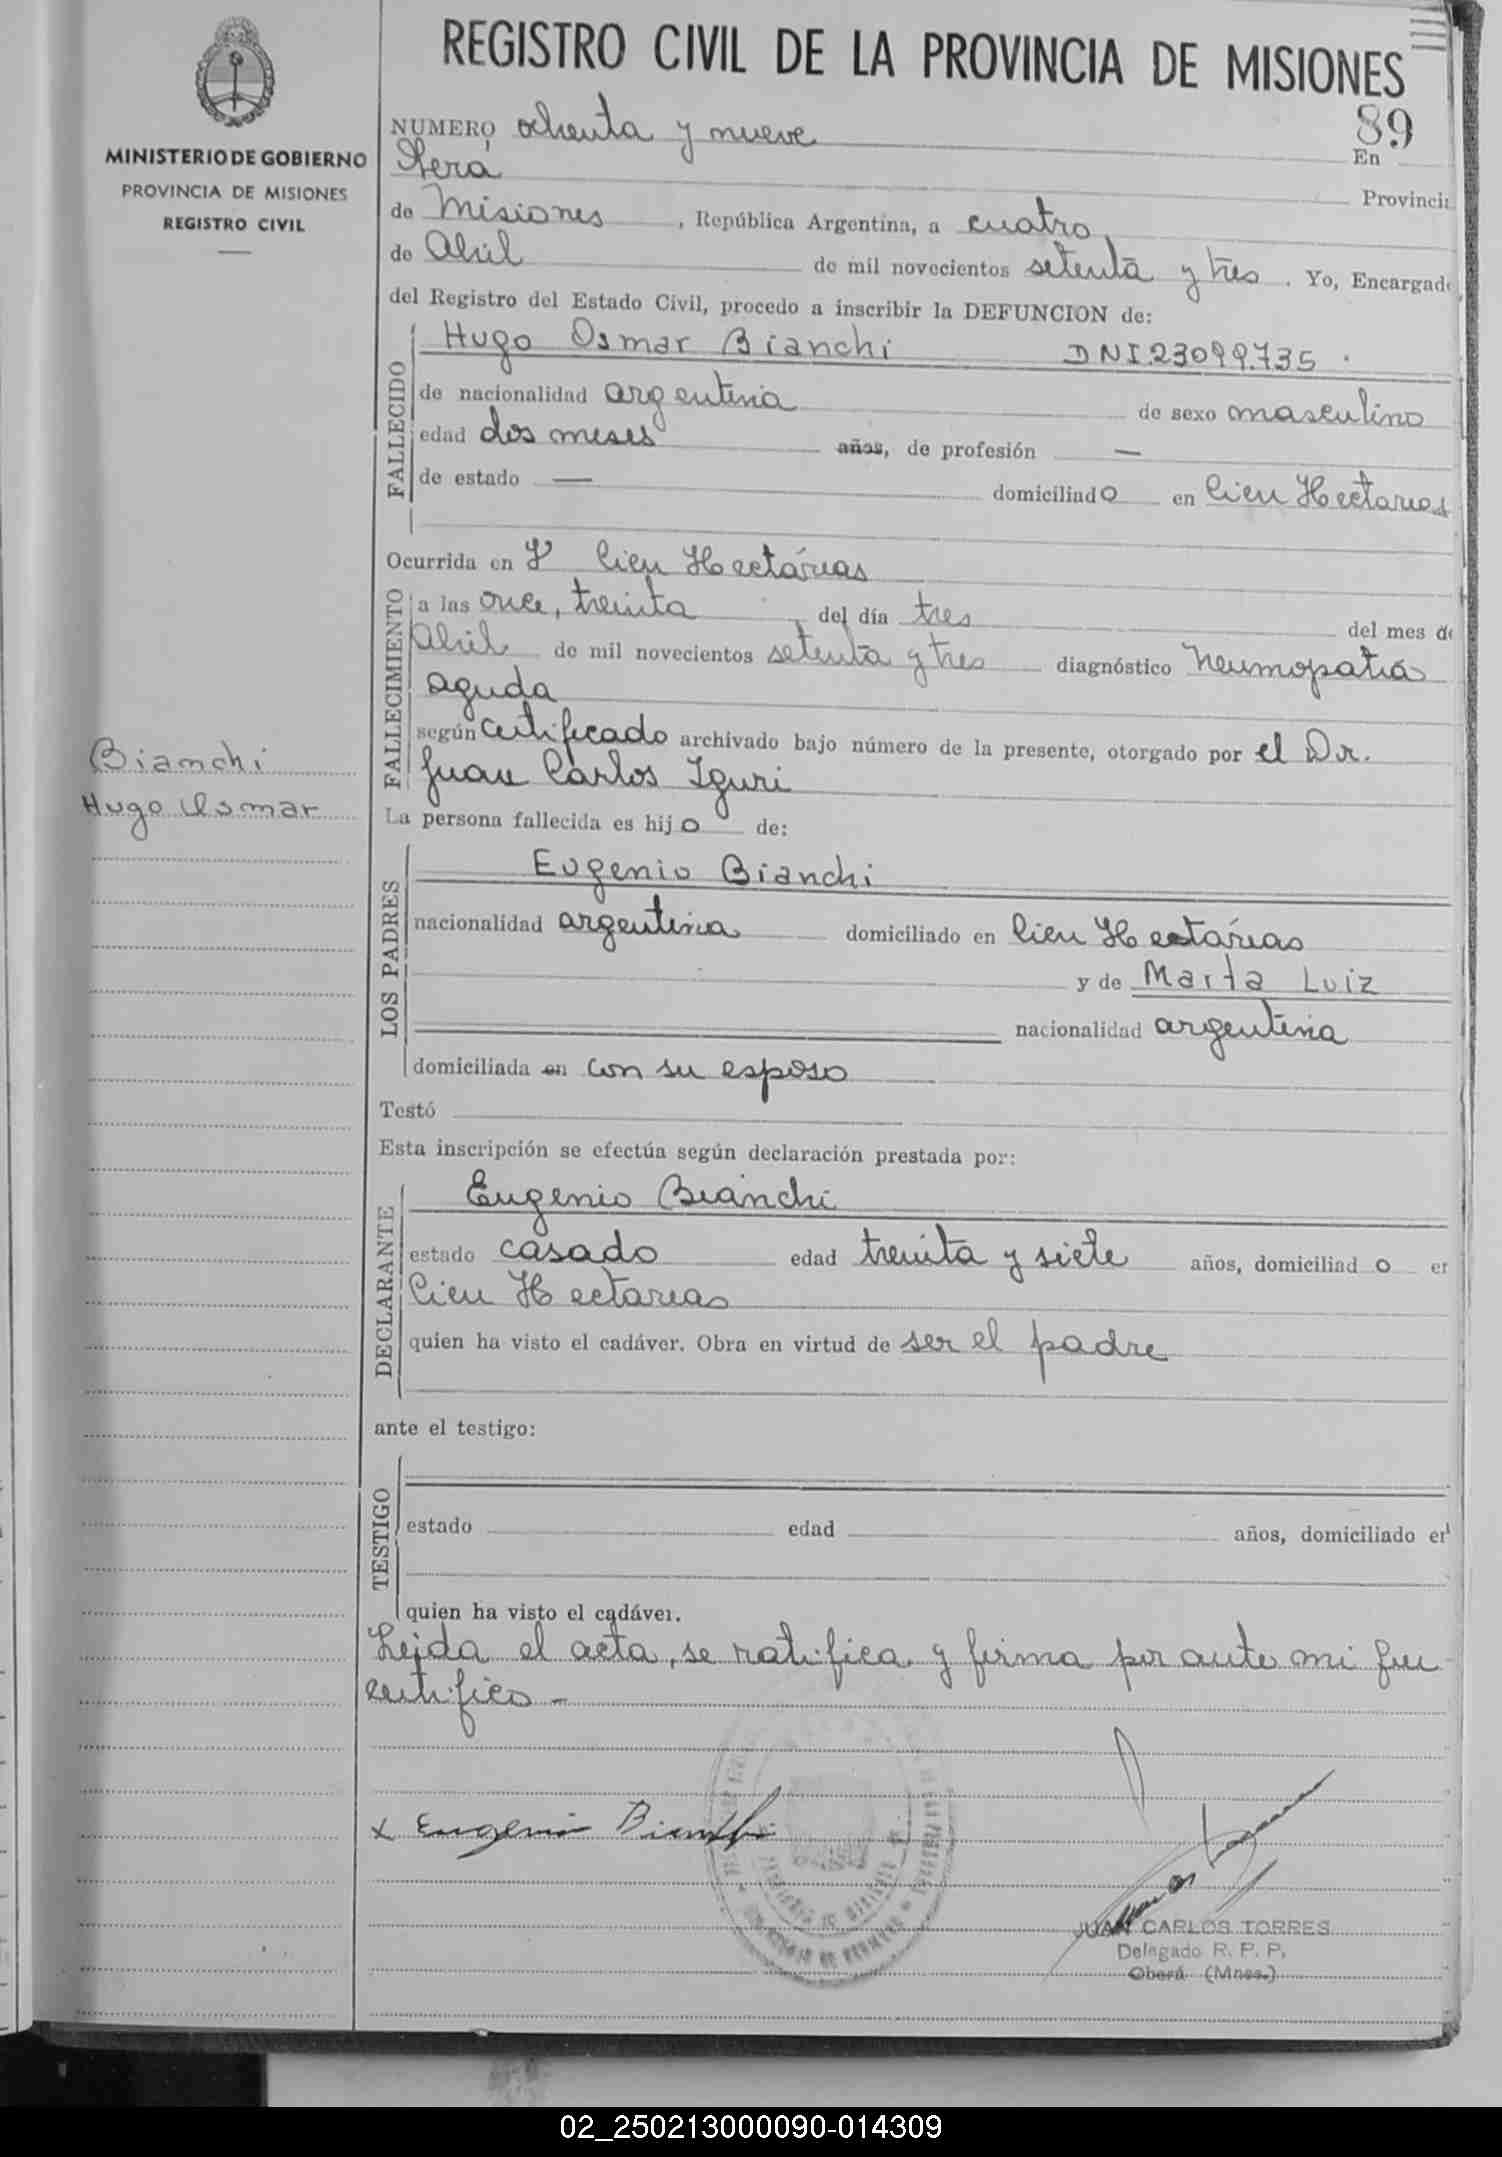 REGISTRO CIVIL DE LA PROVINCIA DE MISIONES
MINISTERIO DE GOBIERNO
PROVINCIA DE MISIONES
REGISTRO CIVIL
NUMERO ochenta y nueve 89
En
Provincia
de Misiones, República Argentina, a cuatro
de Abril de mil novecientos setenta y tres. Yo, Encargado
del Registro del Estado Civil, procedo a inscribir la DEFUNCION de:
FALLECIDO
Hugo Osmar Bianchi DNI.23099.735.
de nacionalidad argentina de sexo masculino
edad dos meses años, de profesión —
de estado — domiciliado en Cien Hectareas
Ocurrida en Cien Hectáreas
FALLECIMIENTO
a las once, treinta del día tres del mes de
Abril de mil novecientos setenta y tres diagnóstico Neumopatia
aguda
según certificado archivado bajo número de la presente, otorgado por el Dr.
Juan Carlos Iguri
Bianchi
Hugo Osmar
La persona fallecida es hijo de:
LOS PADRES
Eugenio Bianchi
nacionalidad argentina domiciliado en Cien Hectáreas
y de Marta Luiz
nacionalidad argentina
domiciliada en con su esposo
Testó
Esta inscripción se efectúa según declaración prestada por:
DECLARANTE
Eugenio Bianchi
estado casado edad treinta y siete años, domiciliado en
Cien Hectareas
quien ha visto el cadáver. Obra en virtud de ser el padre
ante el testigo:
TESTIGO
estado edad años, domiciliado en
quien ha visto el cadáver.
Leida el acta, se ratifica y firma por ante mi que
certifico -
x Eugenio Bianchi
JUAN CARLOS TORRES
Delegado R. P. P.
Oberá (Mnes.)
02_250213000090-014309